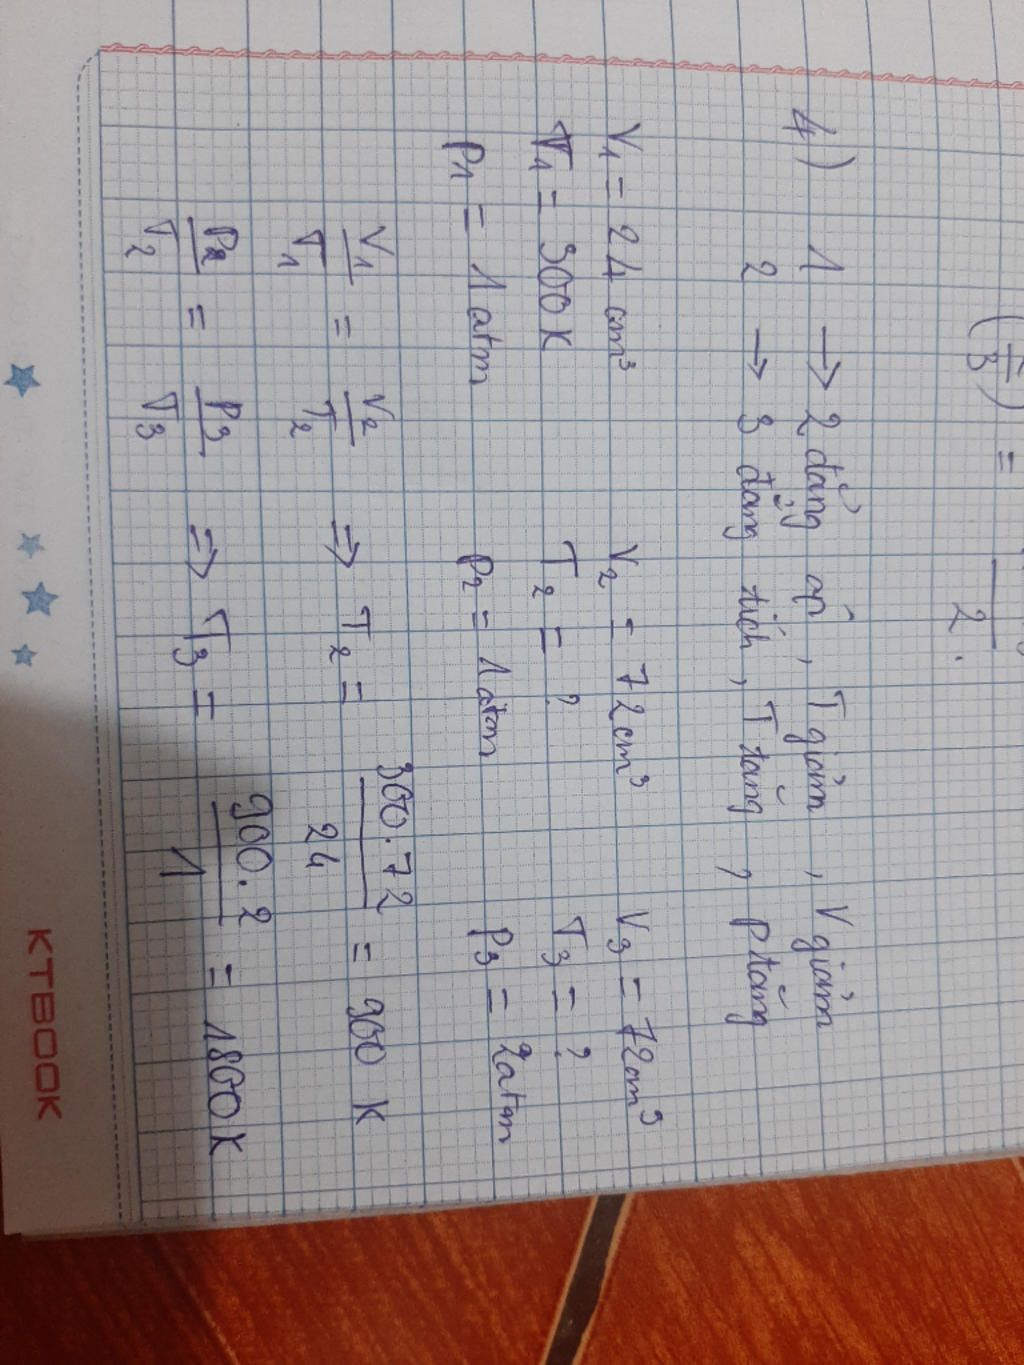 (T/3) =
2.
4) 1 → 2 đẳng áp, T giảm, V giảm
2 → 3 đẳng tích, T tăng, P tăng
V₁ = 24 cm³ V₂ = 72cm³ V₃ = 72cm³
T₁ = 300K T₂ = ? T₃ = ?
P₁ = 1 atm P₂ = 1 atm P₃ = 2atm
V₁/T₁ = V₂/T₂ ⇒ T₂ = 300.72/24 = 900 K
P₂/T₂ = P₃/T₃ ⇒ T₃ = 900.2/1 = 1800K
KTBOOK